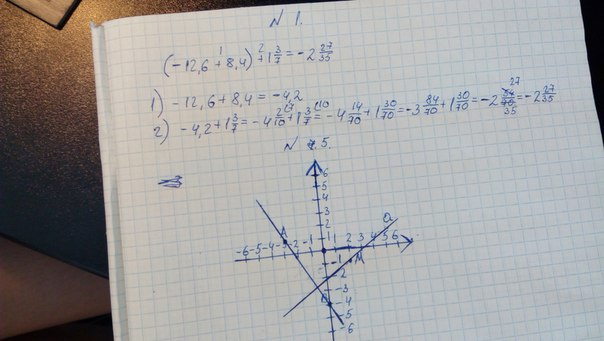 N 1.
(-12,6 + 8,4) + 1 3/7 = -2 27/35
1) -12,6 + 8,4 = -4,2
2) -4,2 + 1 3/7 = -4 2/10 + 1 3/7 = -4 14/70 + 1 30/70 = -3 84/70 + 1 30/70 = -2 54/70 = -2 27/35
N 5.
6
5
4
3
2
1
-6 -5 -4 -3 -2 -1 1 2 3 4 5 6
A
a
M
-1
-2
-3
-4
-5
-6